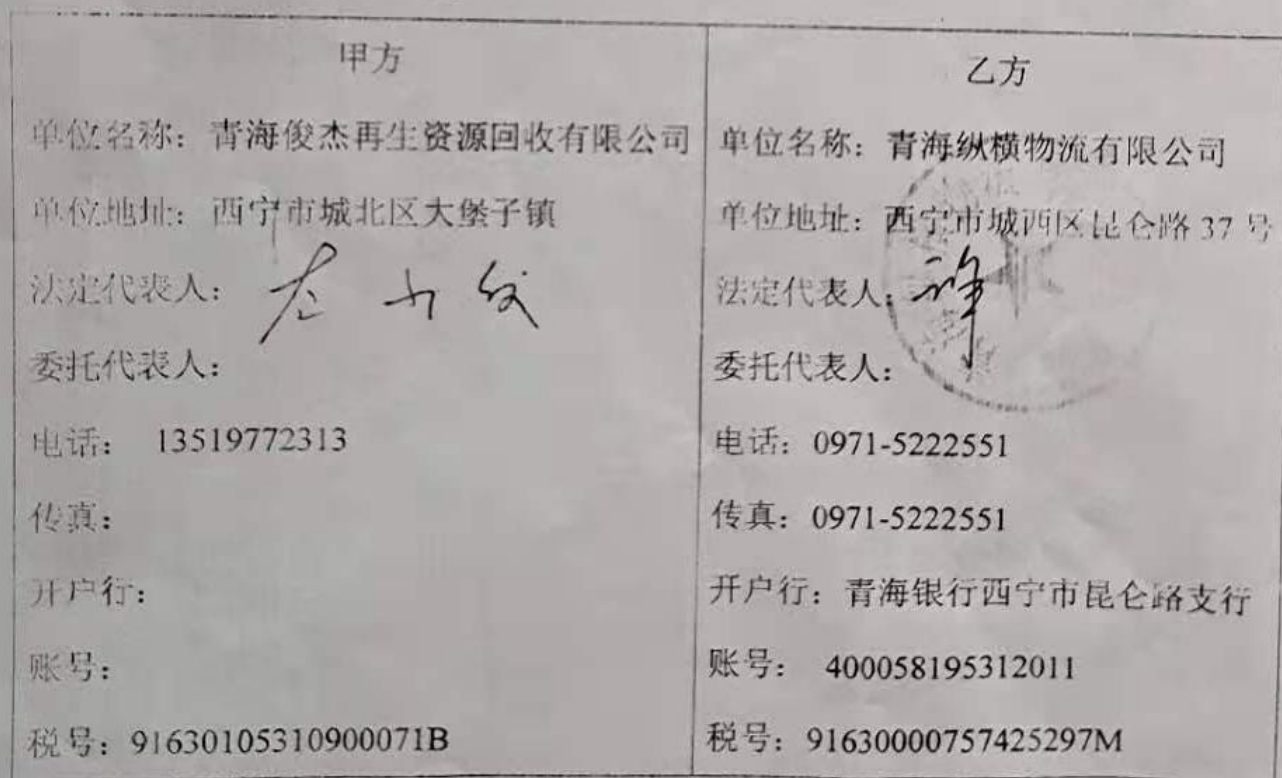 甲方
单位名称：青海俊杰再生资源回收有限公司
单位地址：西宁市城北区大堡子镇
法定代表人：
委托代表人：
电话： 13519772313
传真：
开户行：
账号：
税号：91630105310900071B
乙方
单位名称：青海纵横物流有限公司
单位地址：西宁市城西区昆仑路 37 号
法定代表人：
委托代表人：
电话：0971-5222551
传真：0971-5222551
开户行：青海银行西宁市昆仑路支行
账号： 400058195312011
税号：91630000757425297M